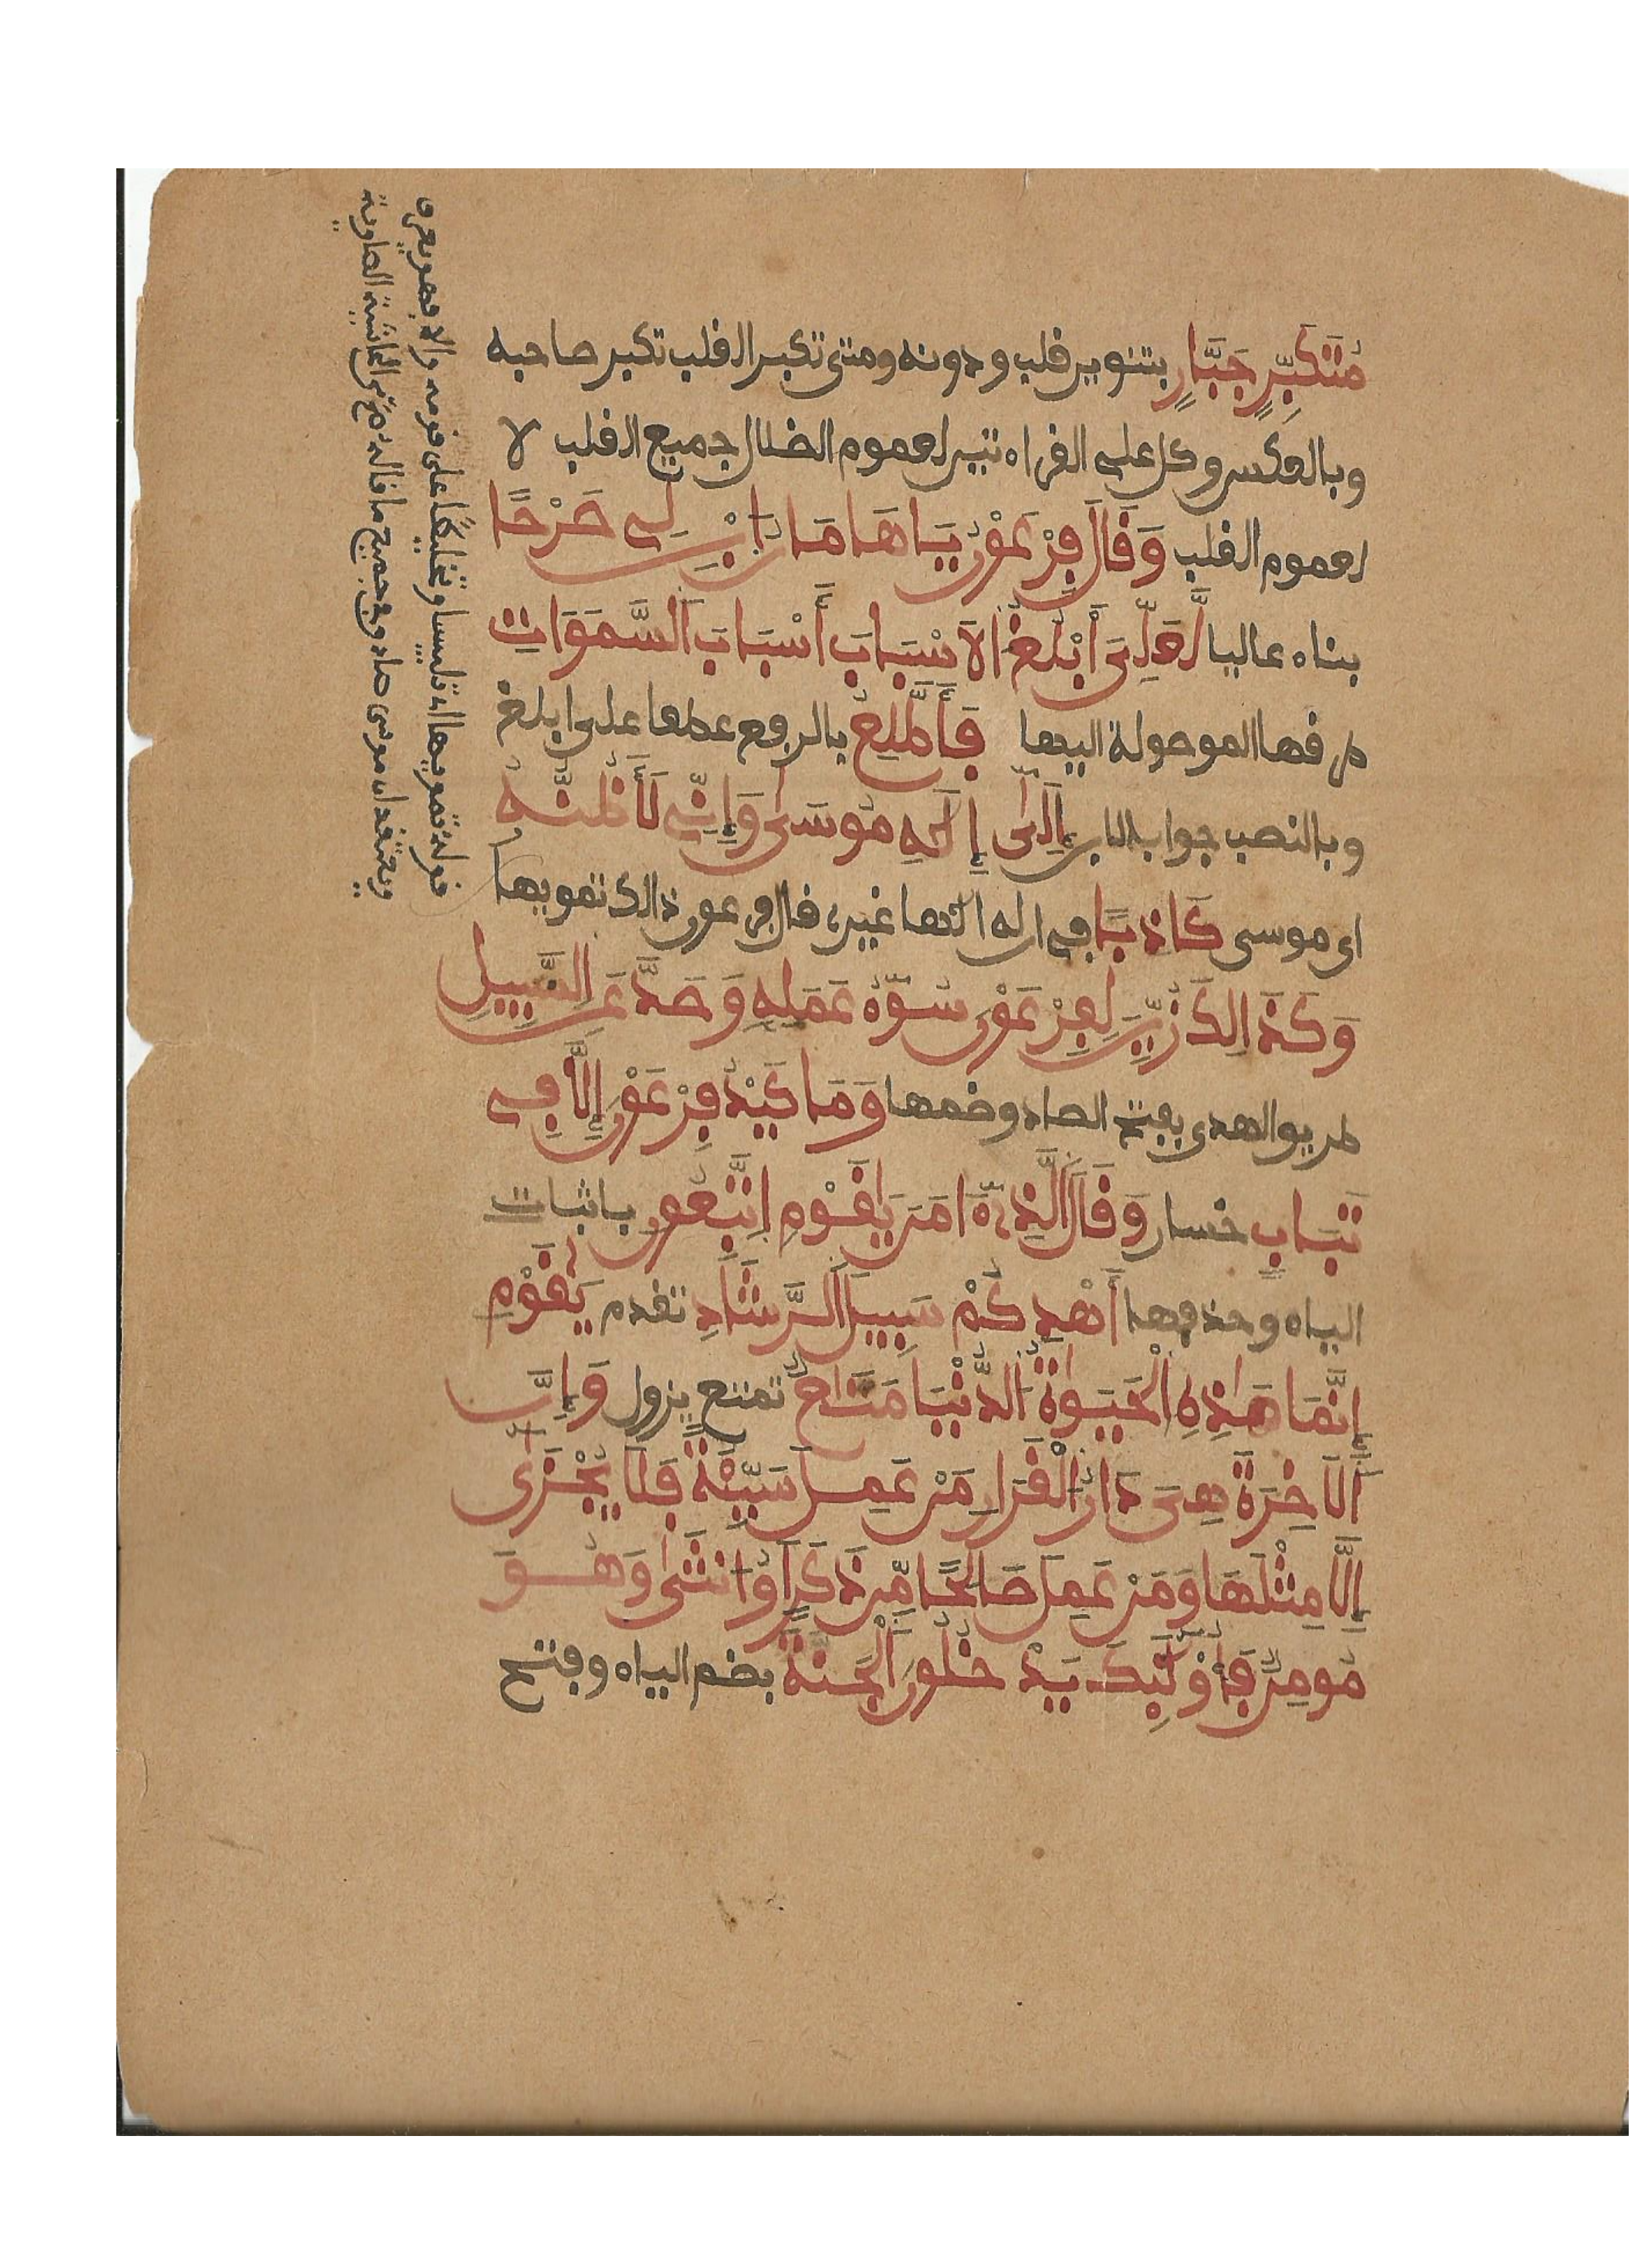 مُتَكَبِّرٍ جَبَّارٍ بتنوير قلب ودونه ومتى تكبر القلب تكبر صاحبه
وبالعكس وكل على القراءتين لعموم الضلال جميع القلب لا
لعموم القلب وَقَالَ فِرْعَوْنُ يَاهَامَانُ ابْنِ لِي صَرْحًا
بناء عاليا لَّعَلِّيَ أَبْلُغُ الَاسْبَابَ أَسْبَابَ اَلسَّمَوَاتِ
طرقها الموصولة اليها فَأَطَّلِعُ بالرفع عطفا على ابلغ
وبالنصب جوابا لابن إِلَىٰ إِلَٰهِ مُوسَىٰ وَإِنِّي لَأَظُنُّهُ
اى موسى كَاذِبًا في ان له الها غيرى قال فرعون ذالك تمويها
وَكَذَالِكَ زُيِّنَ لِفِرْعَوْنَ سُوٓءُ عَمَلِهِ وَصَدَّ عَنِ السَّبِيلِ
طريق الهدى بفتح الصاد وضمها وَمَا كَيْدُ فِرْعَوْنَ إِلَّا فِي
تَبَابٍ خسار وَقَالَ الَّذِي ءَامَنَ يَٰقَوْمِ اِتَّبِعُونِ باثبات
الياء وحذفها أَهْدِكُمْ سَبِيلَ اَلرَّشَادِ تقدم يَٰقَوْمِ
إِنَّمَا هَٰذِهِ اِلْحَيَوٰةُ اُلدُّنْيَا مَتَٰعٌ تمتع يزول وَإِنَّ
اَلَاخِرَةَ هِيَ دَارُ اُلْقَرَارِ مَنْ عَمِلَ سَيِّئَةً فَلَا يُجْزَىٰ
إِلَّا مِثْلَهَا وَمَنْ عَمِلَ صَالِحًا مِّن ذَكَرٍ اَوُ انثَىٰ وَهُوَ
مُومِنٌ فَأُوْلَٰئِكَ يَدْخُلُونَ اَلْجَنَّةَ بضم الياء وفتح
قوله تمويها اى تلبيسا وتخليطا على قومه والا فهو يعرف
ويعتقد ان موسى صادق في جميع ما قاله اه من الحاشية الصاوية